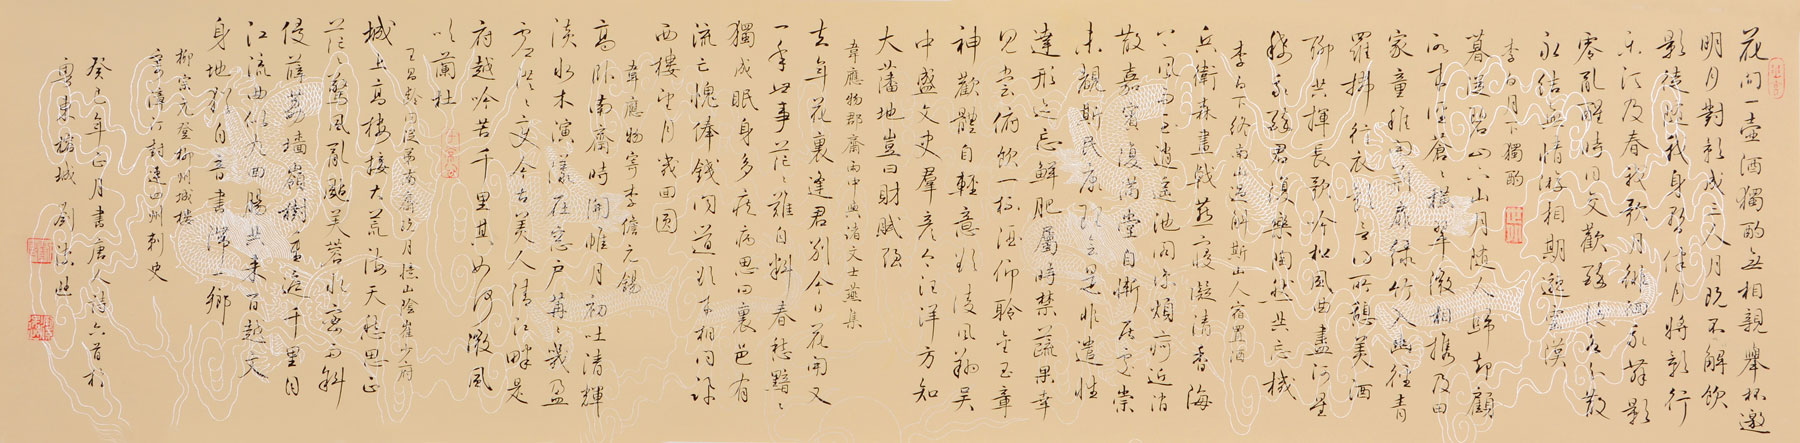 花间一壺酒獨酌无相親舉杯邀
明月對影成三人月既不解飲
影徒隨我身暫伴月將影行
樂須及春我歌月徘徊我舞影
零亂醒時同交歡醉後各分散
永結無情游相期邈雲漢
李白月下獨酌
暮從碧山下山月隨人歸却顧
所來徑蒼〻橫翠微相攜及田
家童稚開荊扉綠竹入幽徑青
蘿拂行衣歡言得所憩美酒
聊共揮長歌吟松風曲盡河星
稀我醉君復樂陶然共忘機
李白下終南山過斛斯山人宿置酒
兵衛森畫戟燕寢凝清香海
上風雨至逍遙池閣涼煩疴近消
散嘉賓復滿堂自慚居處崇
未覩斯民康理會是非遣性
達形迹忘鮮肥屬時禁蔬果幸
見嘗俯飲一杯酒仰聆金玉章
神歡體自輕意欲凌風翔吳
中盛文史羣彥今汪洋方知
大藩地豈曰財賦強
韋應物郡齋雨中與諸文士燕集
去年花裏逢君別今日花開又
一年世事茫〻難自料春愁黯〻
獨成眠身多疾病思田裏邑有
流亡愧俸錢問道欲來相問訊
西樓望月幾回圓
韋應物寄李儋元錫
高卧南齋時開帷月初吐清輝
淡水木演漾在窗戶苒〻幾盈
虛澄〻變今古美人清江畔是
府越吟苦千里其如何微風
吹蘭杜
王昌齡同從弟南齋玩月憶山陰崔少府
城上高樓接大荒海天愁思正
茫〻驚風亂颭芙蓉水密雨斜
侵薜荔墻嶺樹重遮千里目
江流曲似九回腸共來百越文
身地猶自音書滯一鄉
柳宗元登柳州城樓
寄漳汀封連四州刺史
癸巳年正月書唐人詩六首於
粤東榕城 劉